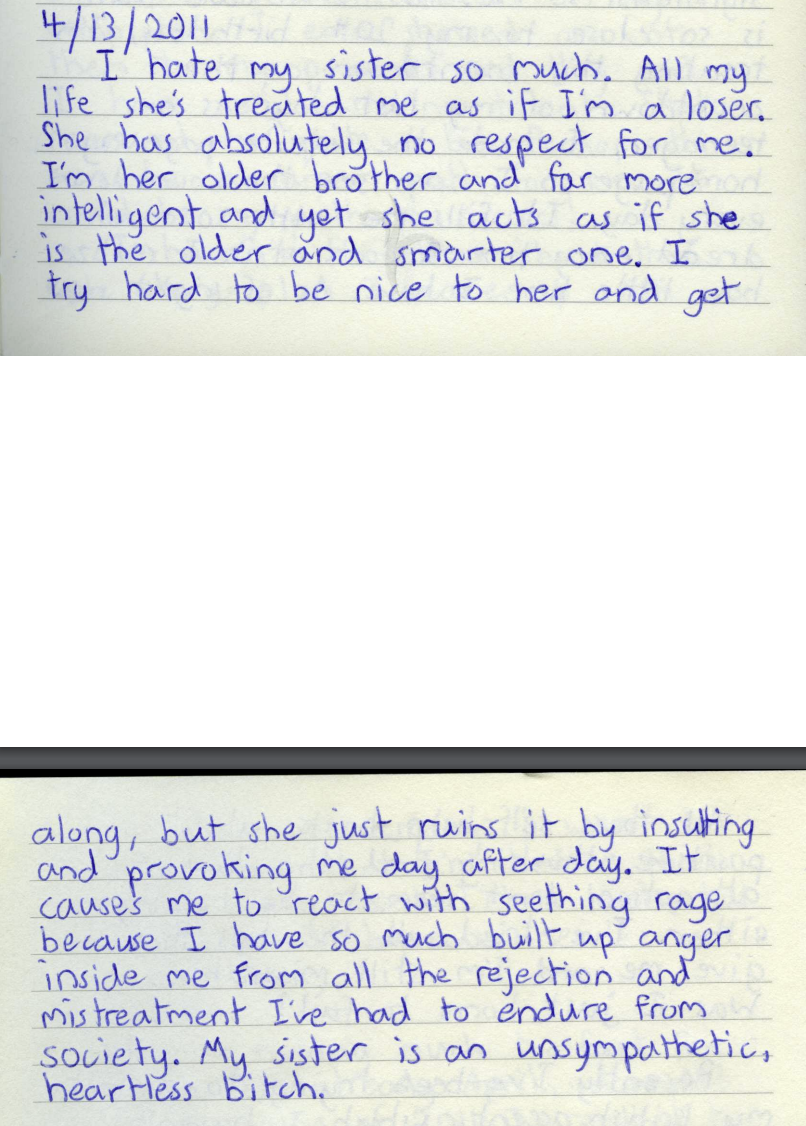 4/13/2011
I hate my sister so much. All my
life she's treated me as if I'm a loser.
She has absolutely no respect for me.
I'm her older brother and far more
intelligent and yet she acts as if she
is the older and smarter one. I
try hard to be nice to her and get
along, but she just ruins it by insulting
and provoking me day after day. It
causes me to react with seething rage
because I have so much built up anger
inside me from all the rejection and
mistreatment I've had to endure from
society. My sister is an unsympathetic,
heartless bitch.